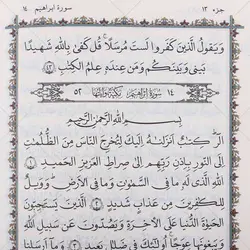 جزء ١٣ سورة ابراهيم ١٤
وَيَقُولُ الَّذِينَ كَفَرُوا لَسْتَ مُرْسَلًا قُلْ كَفَىٰ بِاللَّهِ شَهِيدًا
بَيْنِي وَبَيْنَكُمْ وَمَنْ عِنْدَهُ عِلْمُ الْكِتَٰبِ ٤٣
١٤ سورة ابراهيم مكية وآياتها ٥٢
بِسْمِ اللَّهِ الرَّحْمَٰنِ الرَّحِيمِ
الٓر كِتَٰبٌ أَنْزَلْنَٰهُ إِلَيْكَ لِتُخْرِجَ النَّاسَ مِنَ الظُّلُمَٰتِ
إِلَى النُّورِ بِإِذْنِ رَبِّهِمْ إِلَىٰ صِرَٰطِ الْعَزِيزِ الْحَمِيدِ ١
اللَّهِ الَّذِي لَهُ مَا فِي السَّمَٰوَٰتِ وَمَا فِي الْأَرْضِ وَوَيْلٌ
لِلْكَٰفِرِينَ مِنْ عَذَابٍ شَدِيدٍ ٢ الَّذِينَ يَسْتَحِبُّونَ
الْحَيَوٰةَ الدُّنْيَا عَلَى الْآخِرَةِ وَيَصُدُّونَ عَنْ سَبِيلِ
اللَّهِ وَيَبْغُونَهَا عِوَجًا أُولَٰئِكَ فِي ضَلَٰلٍ بَعِيدٍ ٣ وَمَا أَرْسَلْنَا